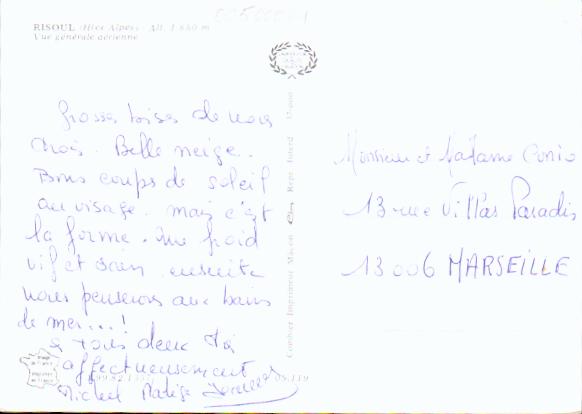 RISOUL (Htes Alpes) - Alt. 1 850 m
Vue générale aérienne
Grosses bises de nous
trois. Belle neige.
Bons coups de soleil
au visage. mais c'est
la forme. Un froid
vif et sain. ensuite
nous penserons aux bains
de mer...!
à tous deux
affectueusement
Michel
Monsieur et Madame Conio
13 rue Villas Paradis
13006 MARSEILLE
Combier Imprimeur Macon Repr. Interd.